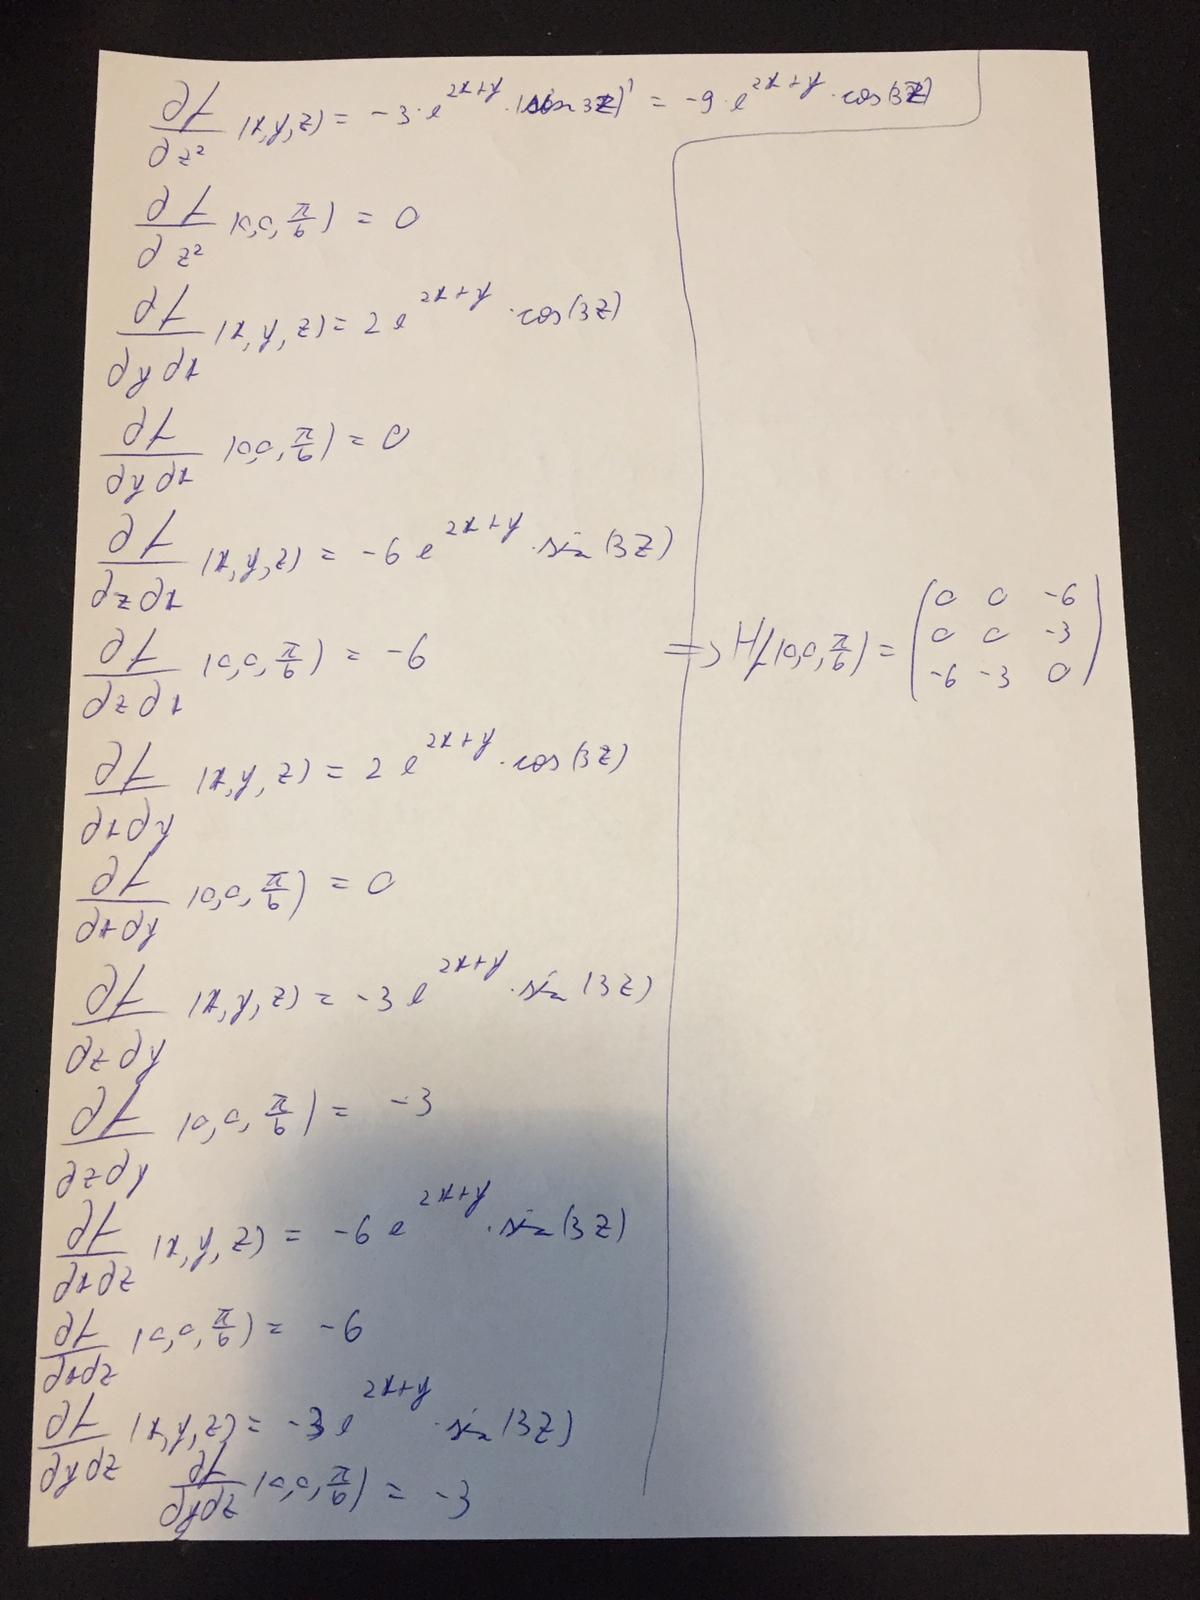 ∂f/∂z² (x,y,z) = -3·e^(2x+y)·(sin 3z)' = -9·e^(2x+y)·cos(3z)
∂f/∂z² (0,0,π/6) = 0
∂f/∂y∂x (x,y,z) = 2e^(2x+y)·cos(3z)
∂f/∂y∂x (0,0,π/6) = 0
∂f/∂z∂x (x,y,z) = -6e^(2x+y)·sin(3z)
∂f/∂z∂x (0,0,π/6) = -6
∂f/∂x∂y (x,y,z) = 2e^(2x+y)·cos(3z)
∂f/∂x∂y (0,0,π/6) = 0
∂f/∂z∂y (x,y,z) = -3e^(2x+y)·sin(3z)
∂f/∂z∂y (0,0,π/6) = -3
∂f/∂x∂z (x,y,z) = -6e^(2x+y)·sin(3z)
∂f/∂x∂z (0,0,π/6) = -6
∂f/∂y∂z (x,y,z) = -3e^(2x+y)·sin(3z)
∂f/∂y∂z (0,0,π/6) = -3
0 0 -6
=> Hf(0,0,π/6) = 0 0 -3
-6 -3 0